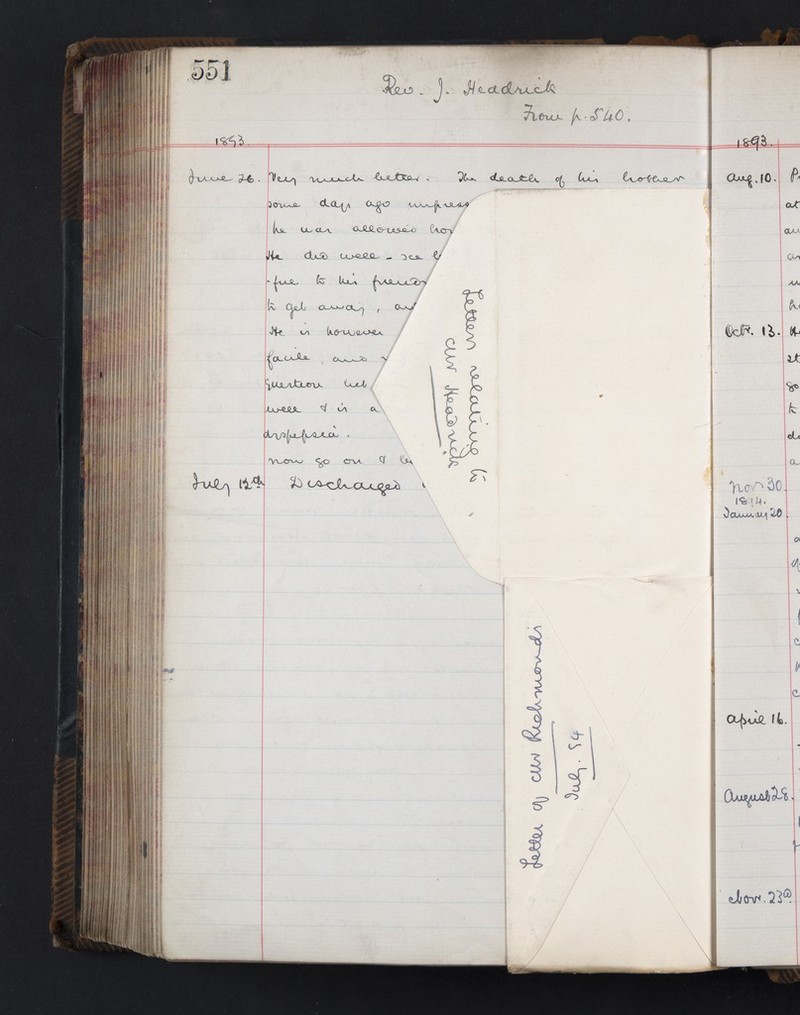 551
Rev. J. Headrick
From p. 540.
1893
June 26. Very much better. The death of his brother
some days ago impress
he was allowed ho
He did well - see
to his friends
to get away, an
He is however
facile, and
question
well & is a
dyspepsia.
now go on &
July 12th Discharged
Letters relating to
Mr Headrick
Letter of Mr Richmond's
July. 94
1893.
Aug. 10.
at
Octr. 13.
go
to
Nov 30.
1894.
January 20
April 16.
August 28.
Nov. 23d